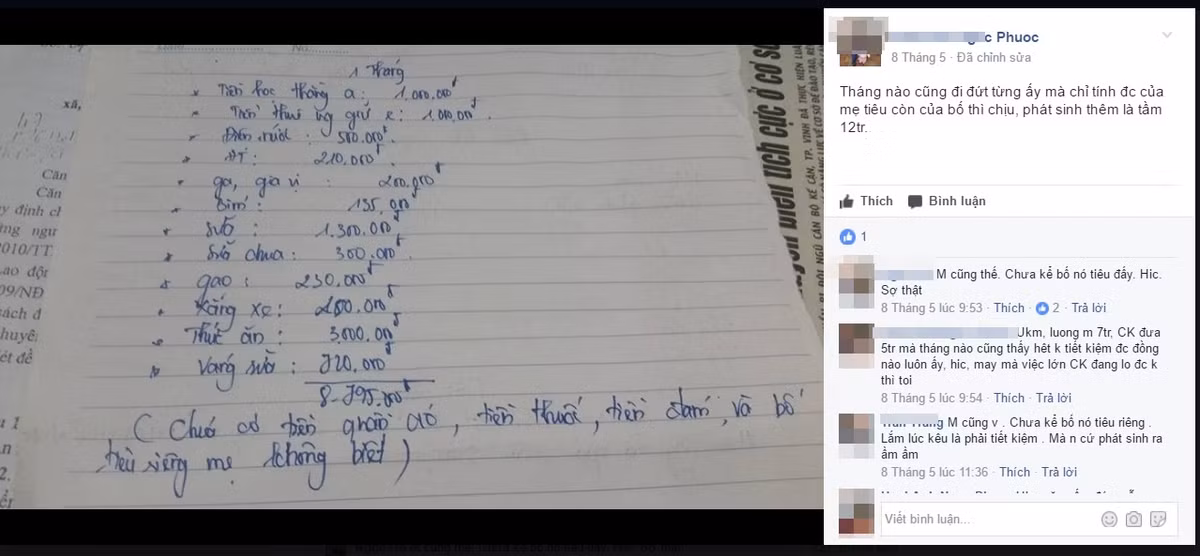 1 tháng
Tiền học tháng a: 1.000.000đ
Tiền thuê ng giữ e: 1.000.000đ.
Điện nước: 500.000đ.
ĐT: 210.000đ
ga, gia vị: 200.000đ
Bỉm: 135.000đ
Sữa: 1.300.000đ
Sữa chua: 300.000đ.
gạo: 230.000đ
Xăng xe: 200.000đ
Thức ăn: 3.000.000đ
Váng sữa: 720.000đ
8.795.000đ
(Chưa có tiền quần áo, tiền thuốc, tiền đám, và bố
tiêu riêng mẹ không biết)
xã,
Căn
Căn
y định ch
ng ngư
2010/TT
ao độ
09/NĐ
sách đ
huyê
ết đề
tích cực ở cơ sở
NGŨ CÁN BỘ KẾ CẬN, TP. VINH ĐÃ THỰC HIỆN LUÂ
ục Phuoc
8 Tháng 5 · Đã chỉnh sửa
Tháng nào cũng đi đứt từng ấy mà chỉ tính đc của
mẹ tiêu còn của bố thì chịu, phát sinh thêm là tầm
12tr.
Thích Bình luận
1
M cũng thế. Chưa kể bố nó tiêu đấy. Hic.
Sợ thật
8 Tháng 5 lúc 9:53 · Thích · 2 · Trả lời
Ukm, luong m 7tr, CK đưa
5tr mà tháng nào cũng thấy hêt k tiết kiệm đc đồng
nào luôn ấy, hic, may mà việc lớn CK đang lo đc k
thi toi
8 Tháng 5 lúc 9:54 · Thích · Trả lời
M cũng v . Chưa kể bố nó tiêu riêng .
Lắm lúc kêu là phải tiết kiệm . Mà n cứ phát sinh ra
ầm ầm
8 Tháng 5 lúc 11:36 · Thích · Trả lời
Viết bình luận...